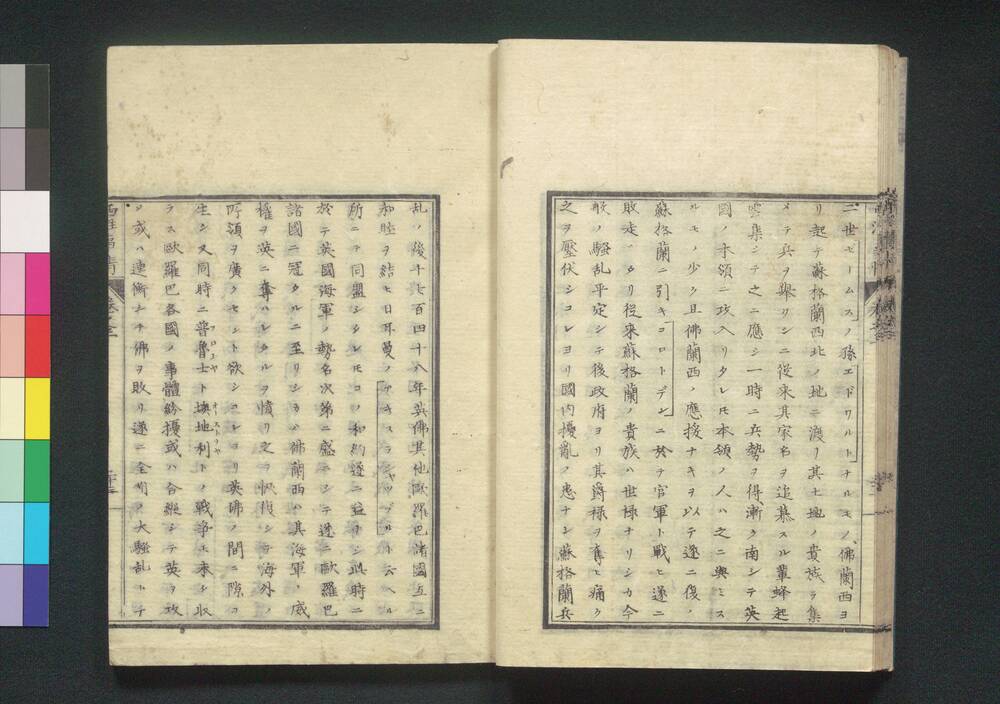 二世ゼームスノ孫エドワルドナルモノ佛蘭西ヨ
リ起テ蘇格蘭西北ノ地ニ渡リ其土地ノ貴族ヲ集
メテ兵ヲ舉リシニ從来其家名ヲ追慕スル輩蜂起
雲集シテ之ニ應シ一時ニ兵勢ヲ得漸ク南シテ英
國ノ本領ニ攻入リタレ𪜈本領ノ人ハ之ニ與ミス
ルモノ少ク且佛蘭西ノ應援ナキヲ以テ遂ニ復
蘇格蘭ニ引キコロトデンニ於テ官軍ト戰ヒ遂ニ
敗走シタリ従来蘇格蘭ノ貴族ハ世禄ナリシカ今
般ノ騒乱平定シテ後政府ヨリ其爵禄ヲ奪ヒ痛ク
之ヲ壓伏シコレヨリ國内擾亂ノ患ナシ蘇格蘭兵
乱ノ後千七百四十八年英佛其他歐羅巴諸國互ニ
和睦ヲ結ヒ日耳曼ノアキスラシャツプルト云ヘル
所ニテ同盟シタレ𪜈コノ和約遂ニ益ナシ此時ニ
於テ英國海軍ノ勢名次第ニ盛ニシテ遂ニ歐羅巴
諸國ニ冠タルニ至リシカハ佛蘭西ハ其海軍ノ威
權ヲ英ニ奪ハレタルヲ憤リ之ヲ恢復シテ海外ノ
所領ヲ廣クセント欲シコレヨリ英佛ノ間ニ隙ヲ
生シ又同時ニ普魯士ト墺地利トノ戰爭モ未タ収
ラス歐羅巴各國ノ事體紛擾或ハ合縱シテ英ヲ攻
メ或ハ連衡シテ佛ヲ敗リ遂ニ全州ノ大騒乱トナ
西洋事情 卷之三